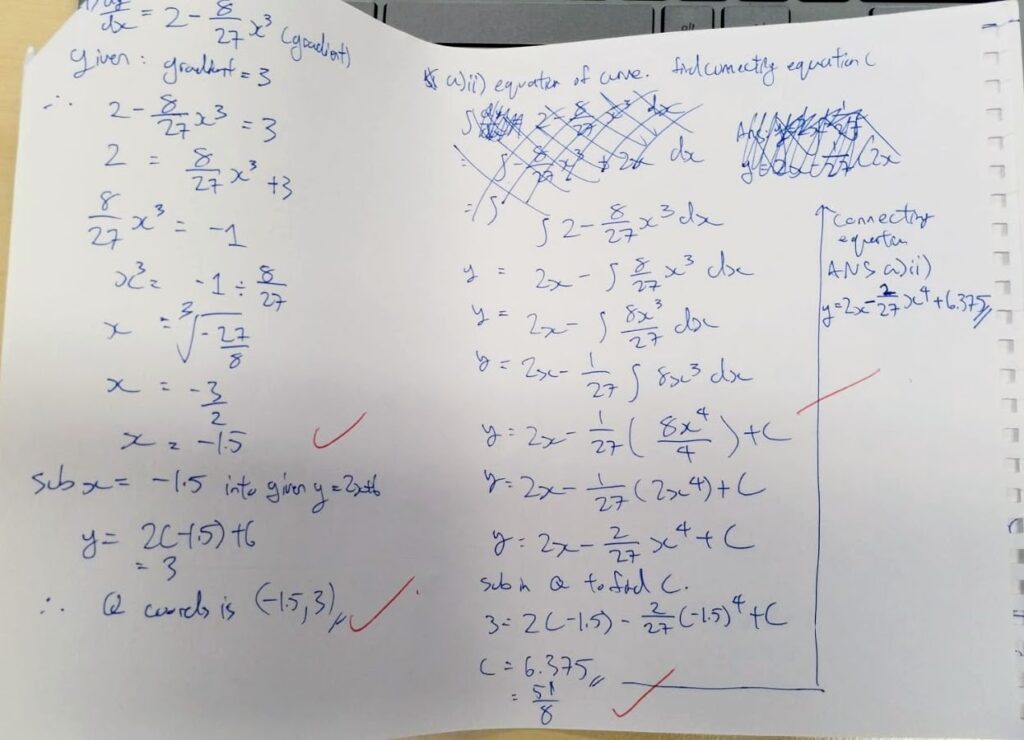 dy/dx = 2 - 8/27 x³ (gradient)
Given: gradient = 3
∴ 2 - 8/27 x³ = 3
2 = 8/27 x³ + 3
8/27 x³ = -1
x³ = -1 ÷ 8/27
x = ³√(-27/8)
x = -3/2
x = -1.5
sub x = -1.5 into given y = 2x+6
y = 2(-1.5)+6
= 3
∴ Q coords is (-1.5, 3)
a)ii) equation of curve. find connecting equation C
∫ 2 - 8/27 x³ dx
= ∫ - 8/27 x³ + 2x dx
= ∫
∫ 2 - 8/27 x³ dx
y = 2x - ∫ 8/27 x³ dx
y = 2x - ∫ 8x³/27 dx
y = 2x - 1/27 ∫ 8x³ dx
y = 2x - 1/27 (8x⁴/4) + C
y = 2x - 1/27 (2x⁴) + C
y = 2x - 2/27 x⁴ + C
sub in Q to find C.
3 = 2(-1.5) - 2/27 (-1.5)⁴ + C
C = 6.375
= 51/8
Connecting
equation
ANS a)ii)
y = 2x - 2/27 x⁴ + 6.375